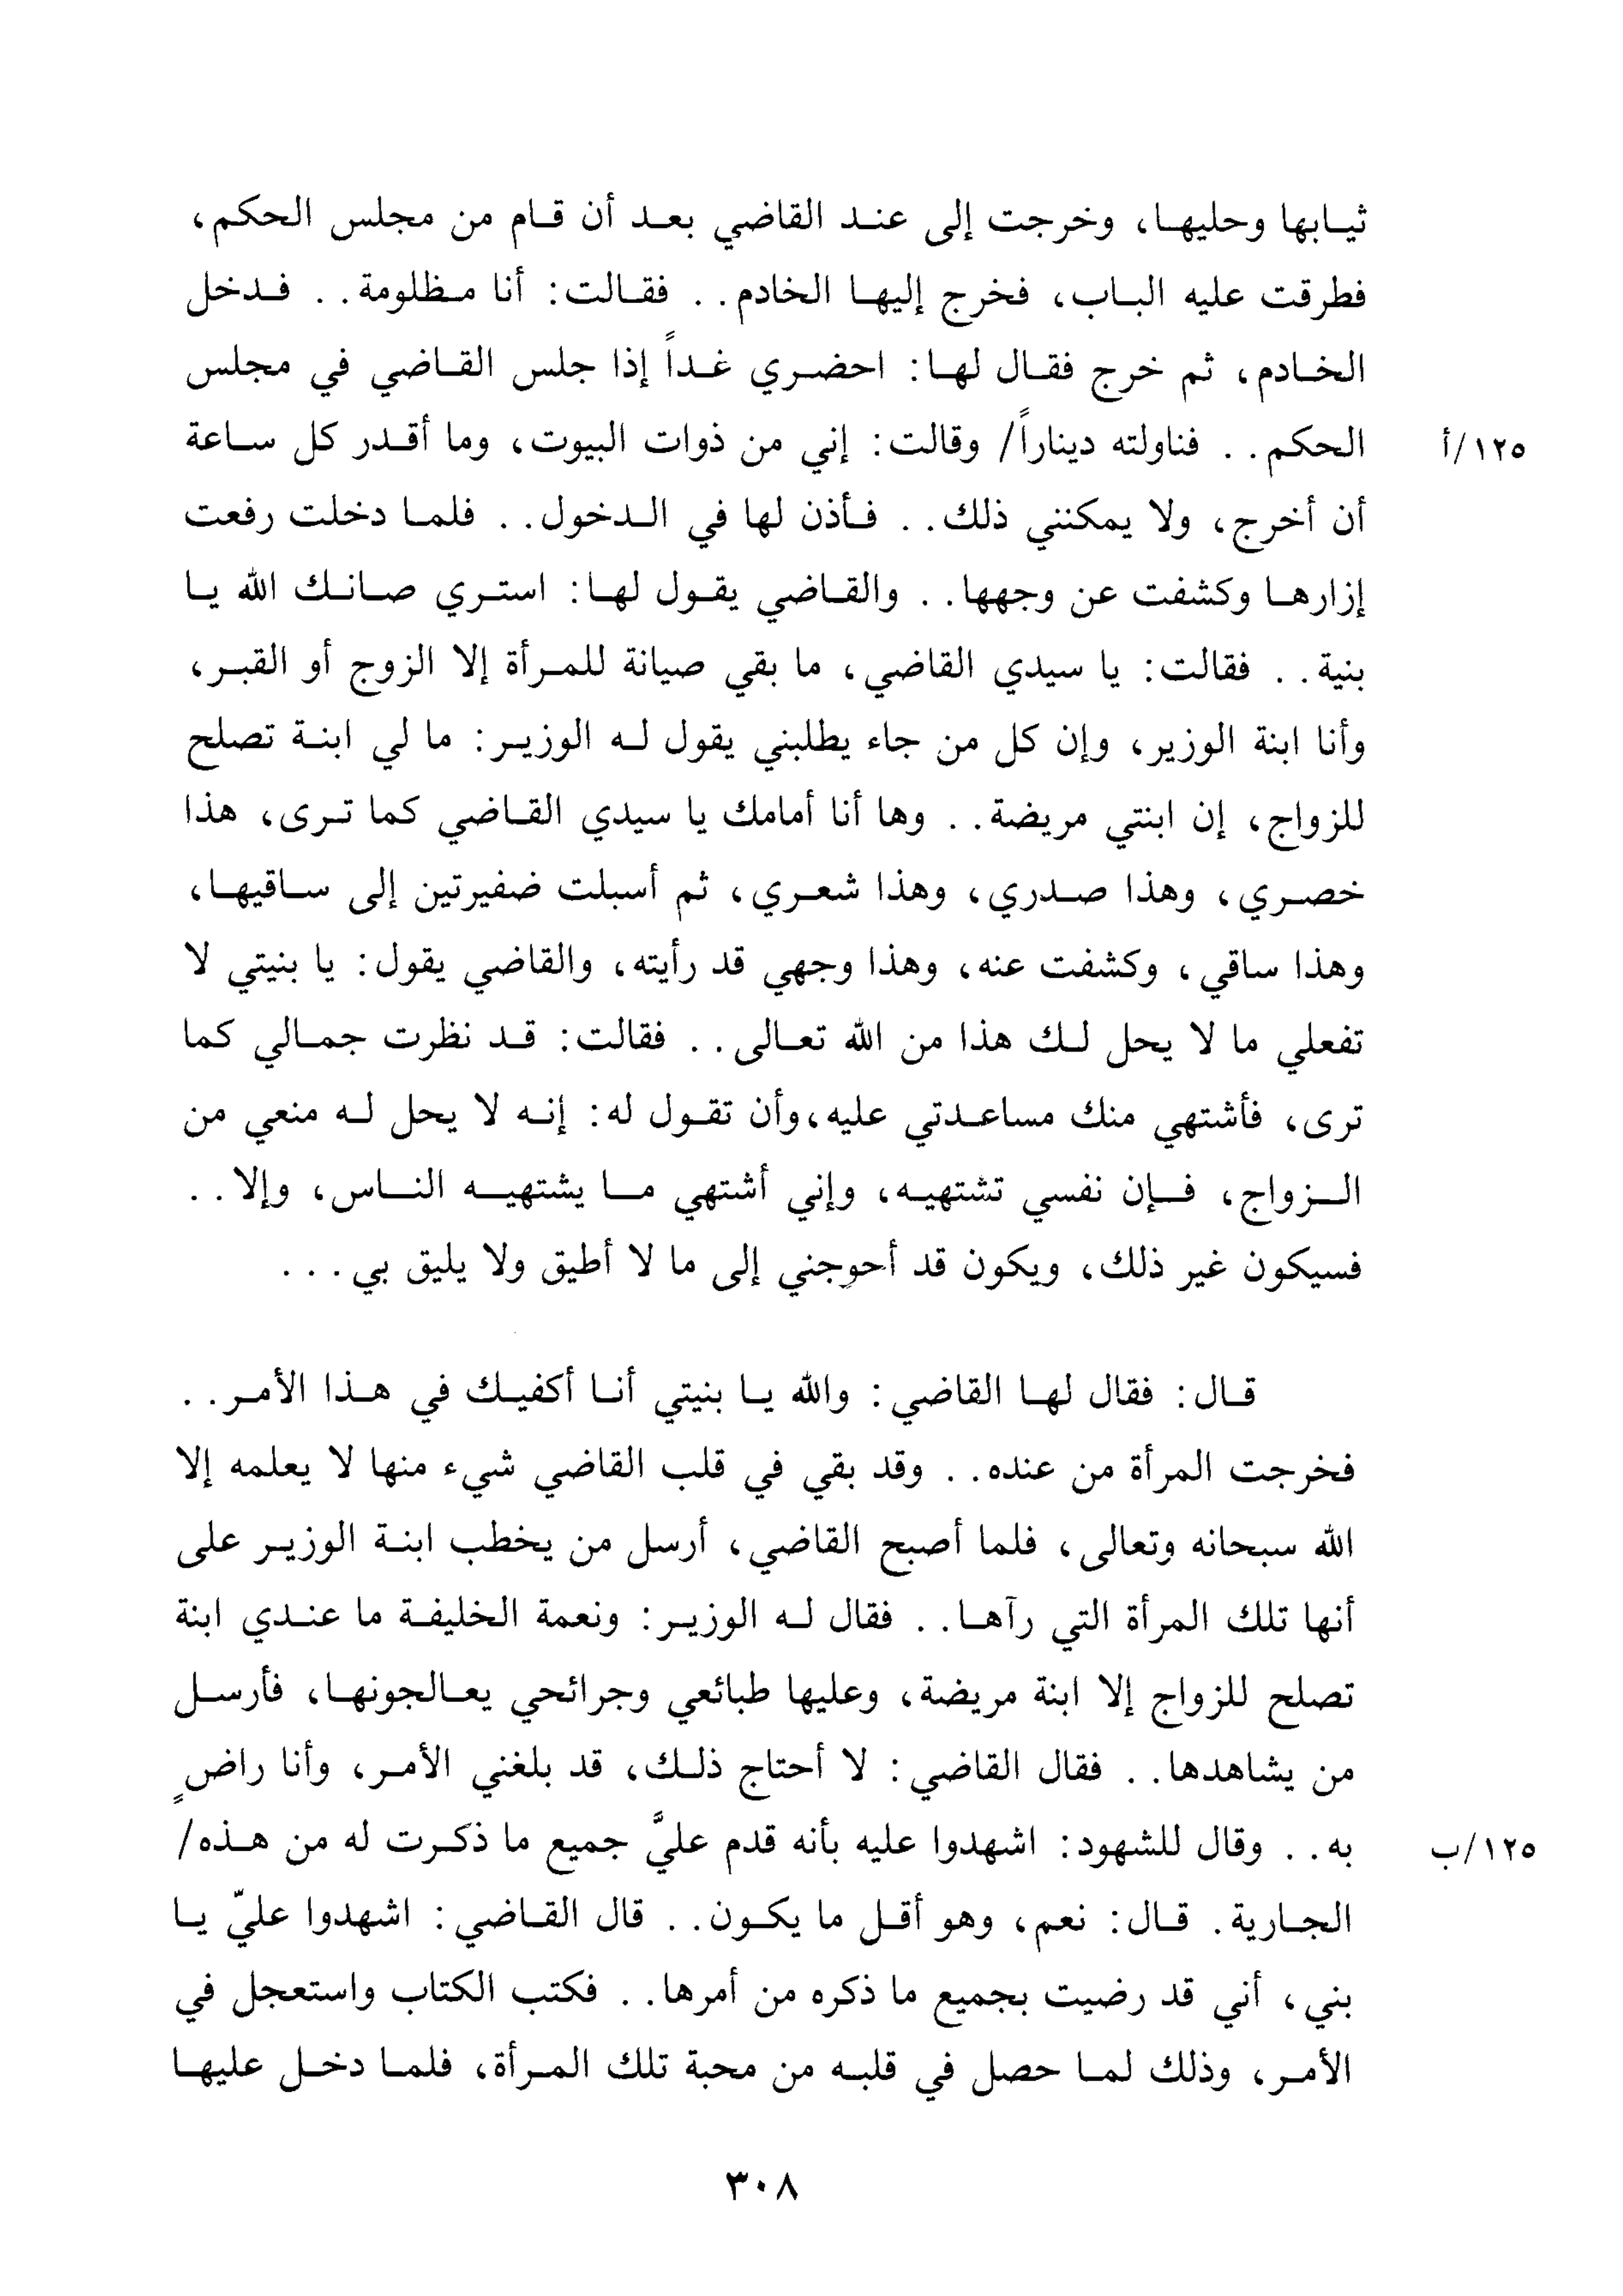 ثيابها وحليها، وخرجت إلى عند القاضي بعد أن قام من مجلس الحكم،
فطرقت عليه الباب، فخرج إليها الخادم.. فقالت: أنا مظلومة.. فدخل
الخادم، ثم خرج فقال لها: احضري غداً إذا جلس القاضي في مجلس
الحكم.. فناولته ديناراً/ وقالت: إني من ذوات البيوت، وما أقدر كل ساعة ١٢٥/أ
أن أخرج، ولا يمكنني ذلك.. فأذن لها في الدخول.. فلما دخلت رفعت
إزارها وكشفت عن وجهها.. والقاضي يقول لها: استري صانك الله يا
بنية.. فقالت: يا سيدي القاضي، ما بقي صيانة للمرأة إلا الزوج أو القبر،
وأنا ابنة الوزير، وإن كل من جاء يطلبني يقول له الوزير: ما لي ابنة تصلح
للزواج، إن ابنتي مريضة.. وها أنا أمامك يا سيدي القاضي كما ترى، هذا
خصري، وهذا صدري، وهذا شعري، ثم أسبلت ضفيرتين إلى ساقيها،
وهذا ساقي، وكشفت عنه، وهذا وجهي قد رأيته، والقاضي يقول: يا بنيتي لا
تفعلي ما لا يحل لك هذا من الله تعالى.. فقالت: قد نظرت جمالي كما
ترى، فأشتهي منك مساعدتي عليه،وأن تقول له: إنه لا يحل له منعي من
الزواج، فإن نفسي تشتهيه، وإني أشتهي ما يشتهيه الناس، وإلا..
فسيكون غير ذلك، ويكون قد أحوجني إلى ما لا أطيق ولا يليق بي...
قال: فقال لها القاضي: والله يا بنيتي أنا أكفيك في هذا الأمر..
فخرجت المرأة من عنده.. وقد بقي في قلب القاضي شيء منها لا يعلمه إلا
الله سبحانه وتعالى، فلما أصبح القاضي، أرسل من يخطب ابنة الوزير على
أنها تلك المرأة التي رآها.. فقال له الوزير: ونعمة الخليفة ما عندي ابنة
تصلح للزواج إلا ابنة مريضة، وعليها طبائعي وجرائحي يعالجونها، فأرسل
من يشاهدها.. فقال القاضي: لا أحتاج ذلك، قد بلغني الأمر، وأنا راضٍ
به.. وقال للشهود: اشهدوا عليه بأنه قدم عليَّ جميع ما ذكرت له من هذه/ ١٢٥/ب
الجارية. قال: نعم، وهو أقل ما يكون.. قال القاضي: اشهدوا عليّ يا
بني، أني قد رضيت بجميع ما ذكره من أمرها.. فكتب الكتاب واستعجل في
الأمر، وذلك لما حصل في قلبه من محبة تلك المرأة، فلما دخل عليها
٣٠٨